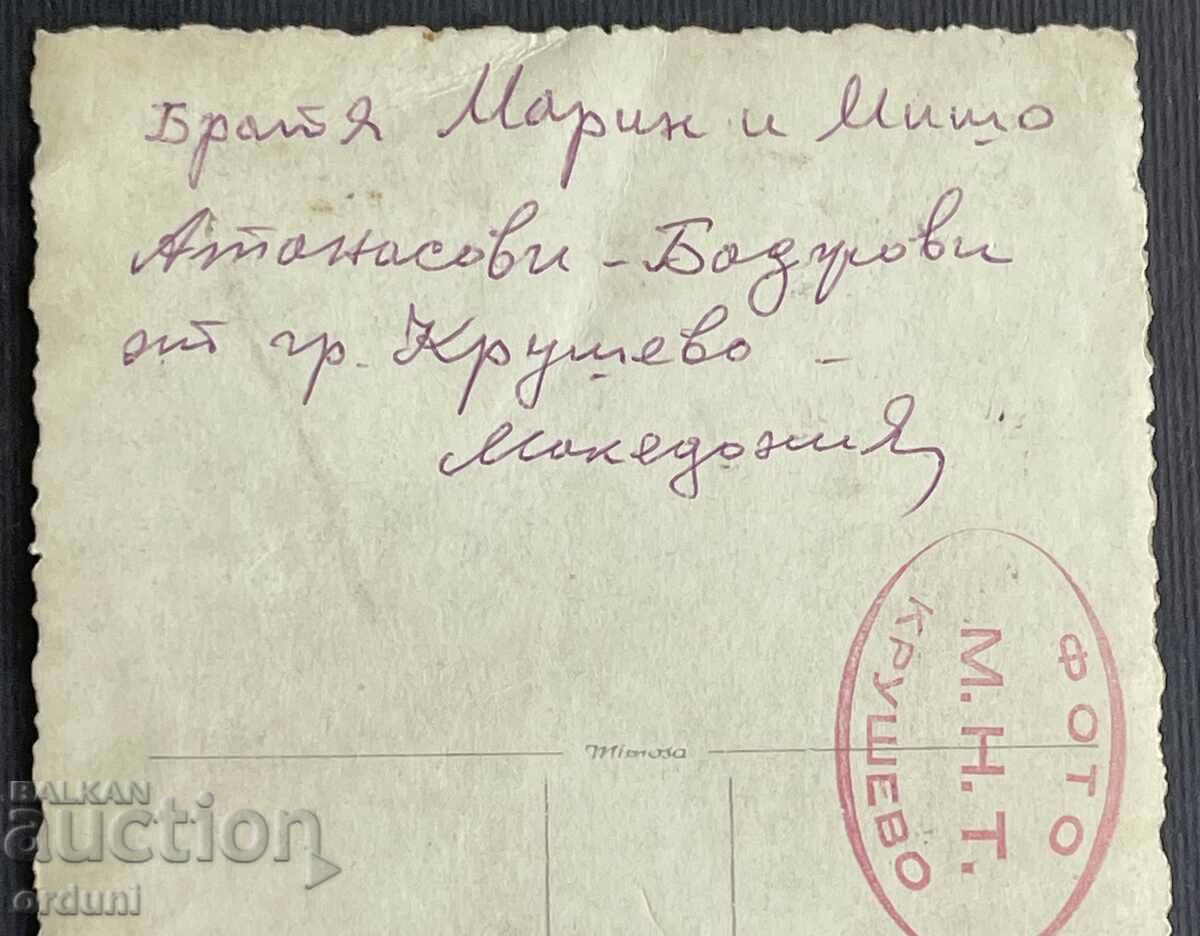 Братя Марин и Мишо
Атанасови - Бадурови
от гр. Крушево -
Македония
ФОТО
М. Н. Т.
КРУШЕВО
Mimosa
BALKAN
auction
orduni